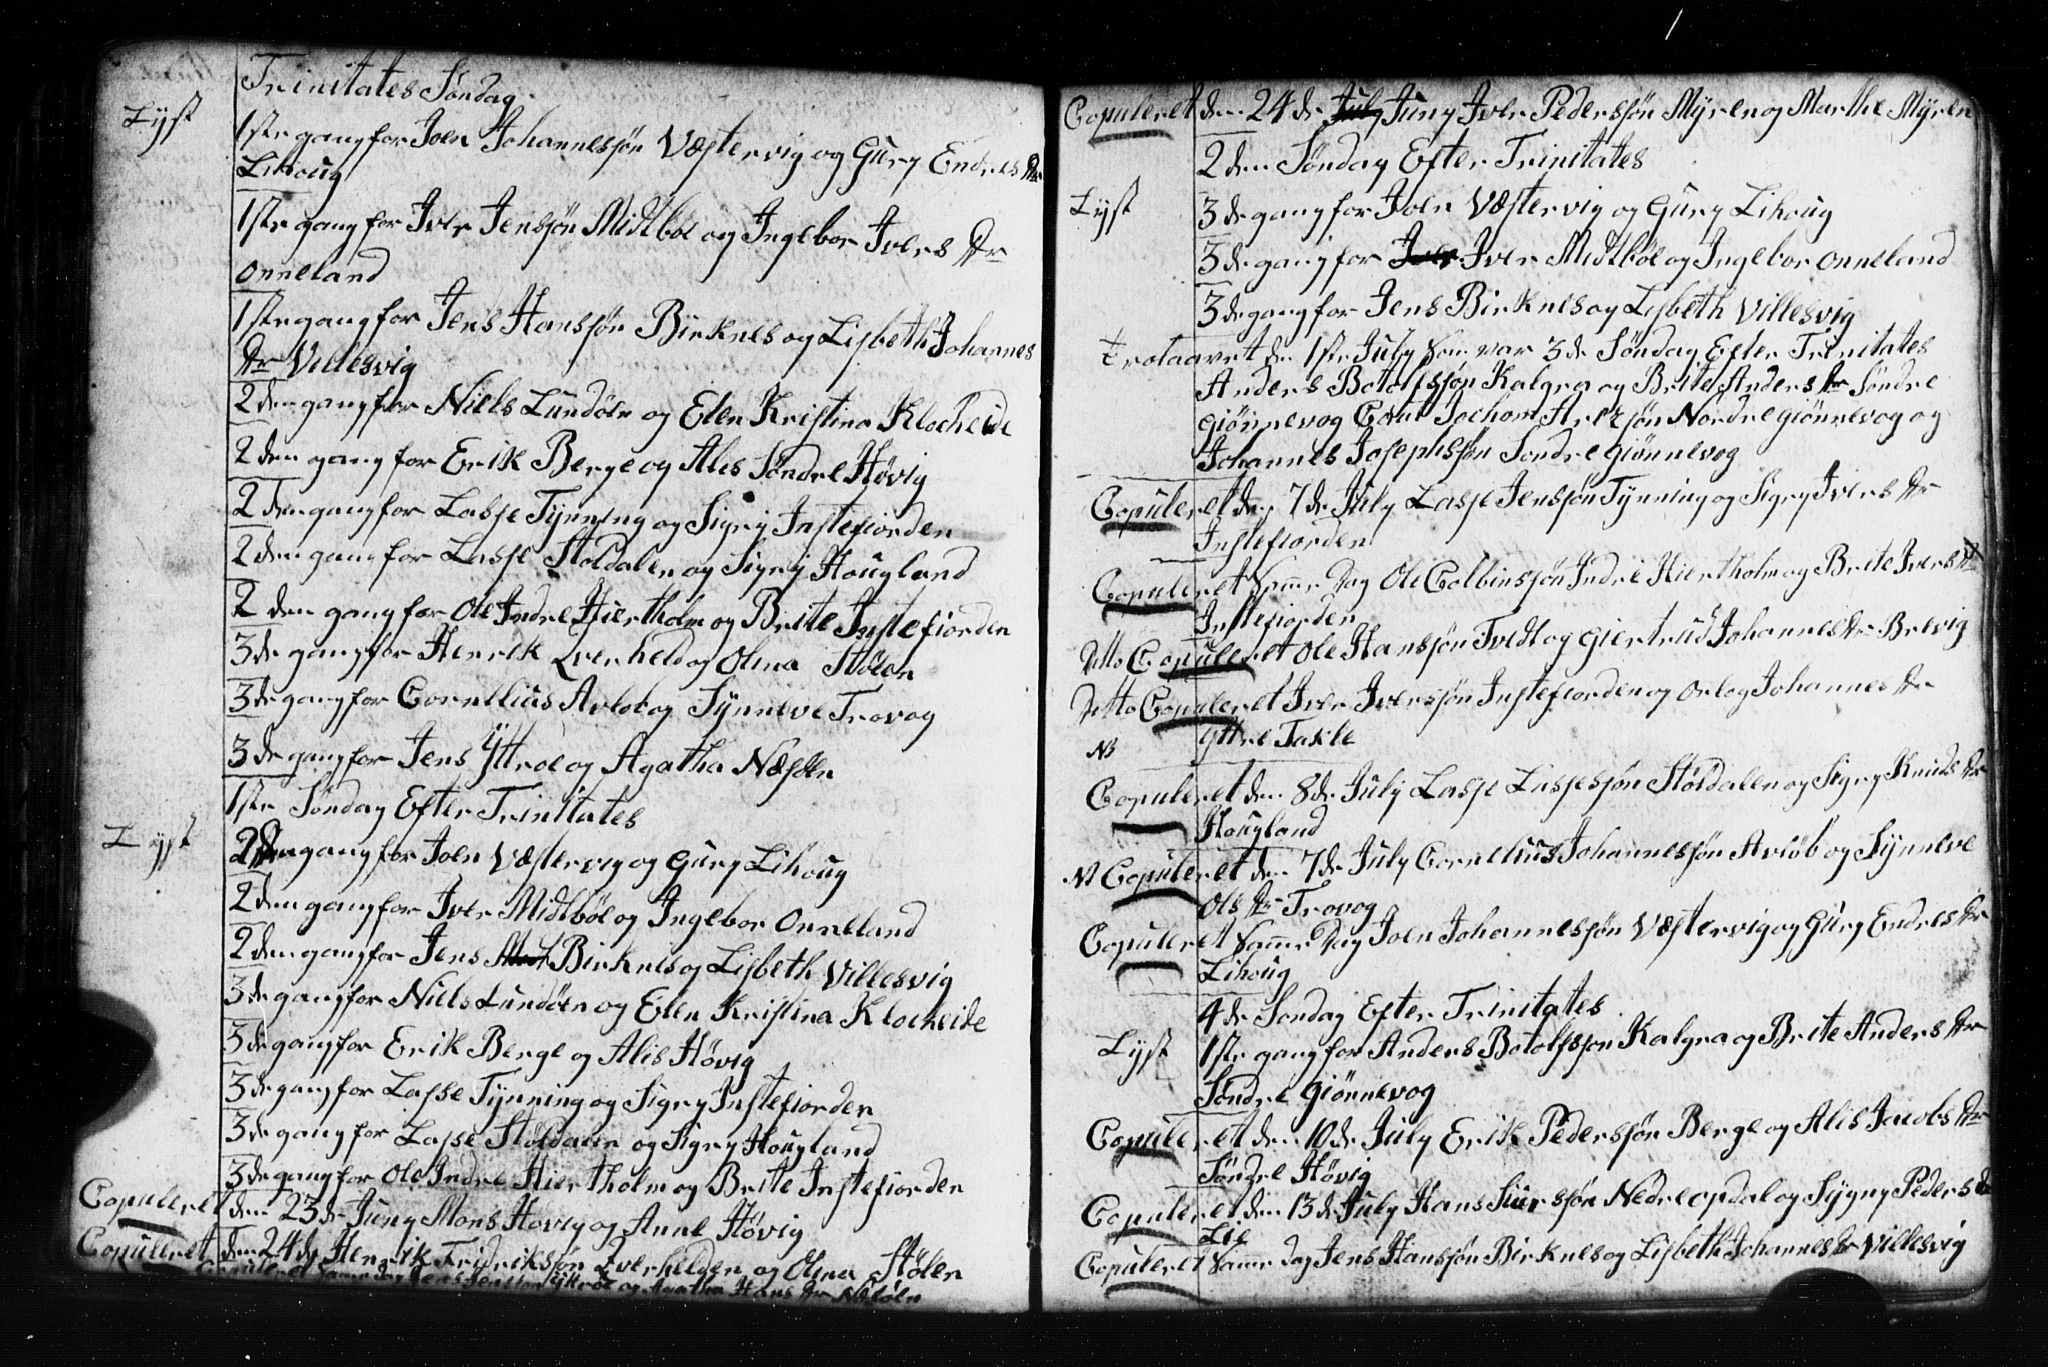 Trinitates Søndag
Lyst
1ste gang for Joen Johannessøn Væstervig og Gury Endres dtr
Lihoug
1ste gang for Iver Jenssøn Midtböe og Ingebor Ivers dtr
Onneland
1ste gang for Jens Hanssøn Birknes og Lisbeth Johannes
dtr Villesvig
2den gang for Niels Lundöen og Elen Kristina Klocheide
2den gang for Erik Berge og Alis Søndre Høvig
2den gang for Lasse Tynning og Sigry Instefiorden
2den gang for Lasse Støldalen og Sigry Hougland
2den gang for Ole Indre Hiertholm og Brite Instefiorden
3de gang for Henrik Qverheld og Olina Stölen
3de gang for Cornellius Avlob og Synneve Trovog
3de gang for Jens Yttröe og Agatha Næsöen
1ste Søndag Efter Trinitates
Lyst
2den gang for Joen Væstervig og Gury Lihoug
2den gang for Iver Midtböe og Ingebor Onneland
2den gang for Jens Birknes og Lisbeth Villesvig
3de gang for Niels Lundöen og Elen Kristina Klocheide
3de gang for Erik Berge og Alis Høvig
3de gang for Lasse Tynning og Sigry Instefiorden
3de gang for Lasse Støldalen og Sigry Hougland
3de gang for Ole Indre Hiertholm og Brite Instefiorden
Copuleret den 23de Juny Mons Hovig og Anne Høvig
Copuleret den 24de Henrik Fridrikssøn Qverhelden og Olina Stölen
Copuleret Samme Dag Jens Jenssøn Yttröe og Agatha Hans dtr Næsöen
Copuleret den 24de July Juny Iver Pederssøn Myren og Marthe Myren
2den Søndag Efter Trinitates
Lyst
3de gang for Joen Væstervig og Gury Lihoug
3de gang for Iver Midtböe og Ingebor Onneland
3de gang for Jens Birknes og Lisbeth Villesvig
trolaavet den 1ste July Som var 3de Søndag Efter Trinitates
Anders Botolfssøn Kalgra og Brite Anders dtr Søndre
Giønnevog Caut Jochom Nordre Giønnevog og
Johannes Josephssøn Søndre Giønnevog
Copuleret den 7de July Lasse Jenssøn Tynning og Sigry Ivers dtr
Instefiorden
Copuleret Samme Dag Ole Colbinssøn Indre Hiertholm og Brite Ivers dtr
Instefiorden
Ditto Copuleret Ole Hanssøn Tvedt og Giertrud Johannes dtr Brevig
Ditto Copuleret Iver Iverssøn Instefiorden og Orlog Johannes dtr
NB
Yttre Takle
Copuleret den 8de July Lasse Lassessøn Støldalen og Sigry Knuds dtr
Hougland
NB Copuleret den 7de July Cornelius Johannessøn Avlöb og Synneve
Ols dtr Trovog
Copuleret Samme Dag Joen Johannessøn Væstervig og Gury Endres dtr
Lihoug
4de Søndag Efter Trinitates
Lyst
1ste gang for Anders Botolfssøn Kalgra og Brite Anders dtr
Søndre Giønnevog
Copuleret den 10de July Erik Pederssøn Berge og Alis Jacobs dtr
Søndre Høvig
Copuleret den 13de July Hans Siurssøn Nedre Opdal og Sygny Peders dtr
Lie
Copuleret Samme Dag Jens Hanssøn Birknes og Lisbeth Johannes dtr Villesvig